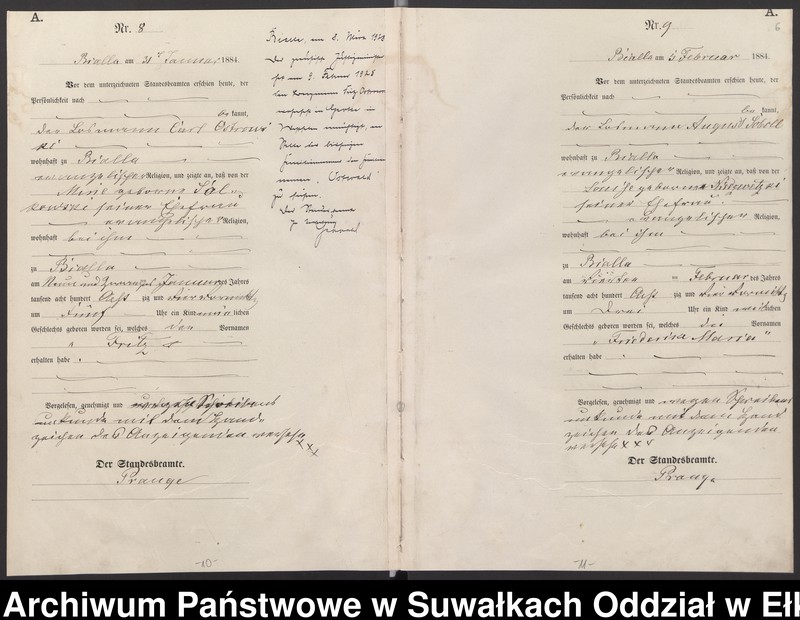 A.
Nr. 8
Bialla am 31t Januar 1884.
Vor dem unterzeichneten Standesbeamten erschien heute, der
Persönlichkeit nach
be kannt,
der Losmann Carl Ostrows
ki
wohnhaft zu Bialla
evangelischer Religion, und zeigte an, daß von der
Marie geborene Sal-
kowski seiner Ehefrau
evangelischer Religion,
wohnhaft bei ihm
zu Bialla
am Neun und zwanzigst Januar des Jahres
tausend acht hundert Acht zig und vier Vormittg
um Fünf Uhr ein Kind männ lichen
Geschlechts geboren worden sei, welches den Vornamen
" Fritz "
erhalten habe
Vorgelesen, genehmigt und wegen Schreibens
unkunde mit dem Hand-
zeichen des Anzeigenden versehn
xxx
Der Standesbeamte.
Prange
-10-
Bialla, am 8. März 1928
Der
hat am 9. Februar 1928
dem
in
an
Stelle des bisherigen
Familiennamens den Familien
namen "Ostwald"
zu führen.
Der Standesbeamte
A.
6
Nr. 9
Bialla am 5 Februar 1884
Vor dem unterzeichneten Standesbeamten erschien heute, der
Persönlichkeit nach
be kannt,
der Losmann August Soboll
wohnhaft zu Bialla
evangelischer Religion, und zeigte an, daß von der
Louise geborene
seiner Ehefrau
evangelischer Religion,
wohnhaft bei ihm
zu Bialla
am Vierten Februar des Jahres
tausend acht hundert Acht zig und vier Vormittg
um Drei Uhr ein Kind weib lichen
Geschlechts geboren worden sei, welches die Vornamen
" Friederike Marie "
erhalten habe
Vorgelesen, genehmigt und wegen Schreibens
unkunde mit dem Hand
zeichen des Anzeigenden
versehn xxx
Der Standesbeamte.
Prange
-11-
Archiwum Państwowe w Suwałkach Oddział w Ełk